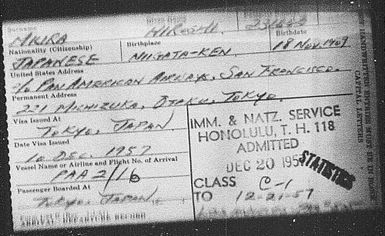 MKIRA HIROSHI
Nationality (Citizenship) Birthplace Birthdate
JAPANESE NIIGATA-KEN 18 NOV. 1909
United States Address
c/o PAN AMERICAN AIRWAYS, SAN FRANCISCO
Permanent Address
221 MICHIZUKA, OTAKU, TOKYO
Visa Issued At
TOKYO, JAPAN
Date Visa Issued
10 DEC. 1957
Vessel Name or Airline and Flight No. of Arrival
PAA 2/16
Passenger Boarded At
TOKYO, JAPAN
ARRIVAL DEPARTURE RECORD
IMM. & NATZ. SERVICE
HONOLULU, T. H. 118
ADMITTED
DEC 20 195
CLASS C-1
TO 12-21-57
STATISTICS
CAPITAL LETTERS